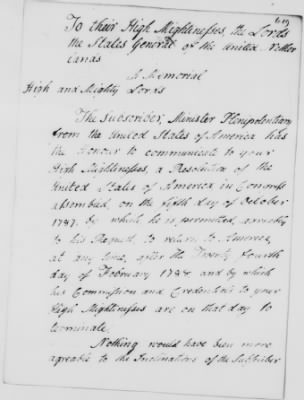 To their High Mightinesses, the Lords
the States General of the United Nether
lands
A Memorial
High and Mighty Lords
The Subscriber, Minister Plenipotentiary
from the United States of America has
the Honour to communicate to your
High Mightinesses, a Resolution of the
United States of America in Congress
assembled, on the fifth day of October
1787. by which he is permitted,
to his Request, to return to America,
at any time, after the Twenty fourth
day of February 1788 and by which
his Commission and Credentials to your
High Mightinesses are on that day to
terminate.
Nothing would have been more
agreable to the Inclinations of the Subscriber